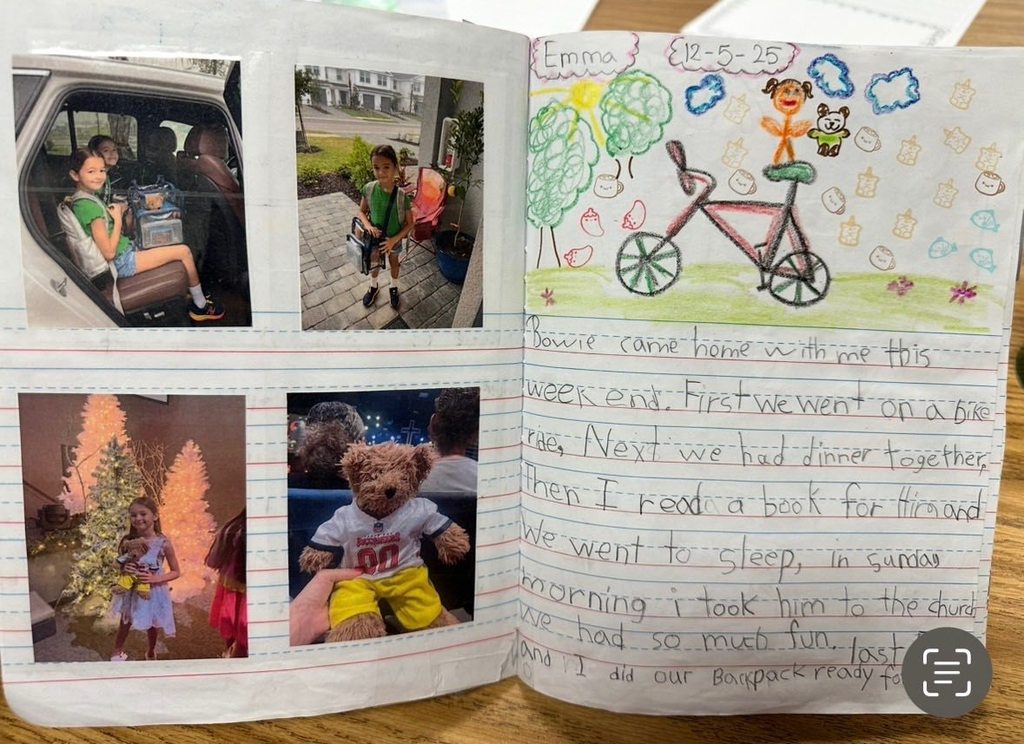 Emma
12-5-25
Bowie came home with me this
week end. First we went on a bike
ride, Next we had dinner together,
Then I read a book for Him and
We went to sleep, in sunday
morning i took him to the church
We had so much fun. last
and I did our Backpack ready fo
90